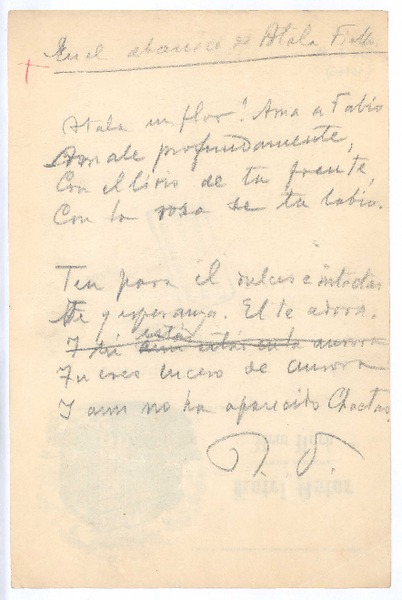 En el abanico de Atala Fiallo.
Atala en flor! Ama a Fabio
Amale profundamente,
Con el lirio de tu frente,
Con la rosa de tu labio.
Ten para él dulces e intactas
Fe y esperanza. El te adora.
está
Y aun estás en la aurora
Tu eres lucero de aurora
Y aun no ha aparecido Chactas.
R. D.
New York
Hotel Astor